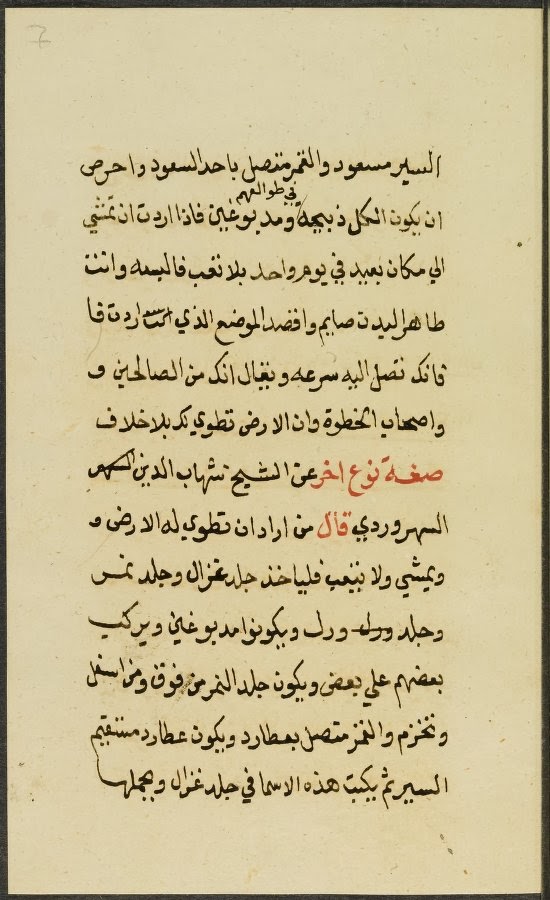 7
السير مسعود والقمر متصل باحد السعود واحرص
في طوالعهم
ان يكون الكل ذبيحة ومدبوغين فاذا اردت ان تمشي
الي مكان بعيد في يوم واحد بلا تعب فالبسه وانت
طاهر البدن صايم واقصد الموضع الذي انت اردت فا
فانك تصل اليه سرعه ويقال انك من الصالحين و
واصحاب الخطوة وان الارض تطوي لك بلا خلاف
صفة نوع اخر عن الشيخ شهاب الدين السهر
السهروردي قال من اراد ان تطوي له الارض و
ويمشي ولا يتعب فلياخذ جلد غزال وجلد نمس
وجلد ورل ورل ويكونوا مدبوغين ويركب
بعضهم علي بعض ويكون جلد النمر من فوق ومن اسفل
وتخزم والقمر متصل بعطارد ويكون عطارد مستقيم
السير ثم يكتب هذه الاسما في جلد غزال ويجملها